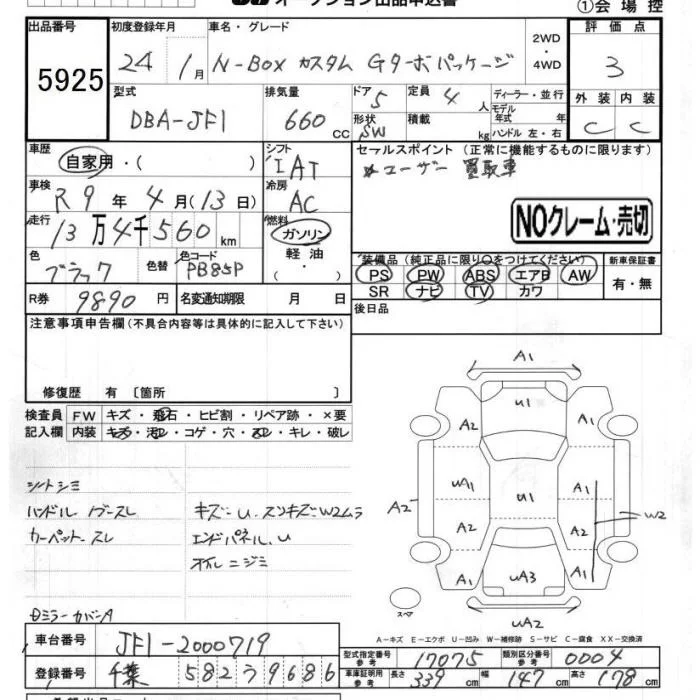 オークション出品申込書
①会場控
出品番号 初度登録年月 車名・グレード 2WD ・ 4WD 評価点
5925 24 1月 N-BOX カスタム Gターボパッケージ 3
型式 排気量 ドア 5 定員 4 人 ディーラー・並行 外装 内装
DBA-JF1 660 CC 形状 SW 積載 kg モデル年式 年 ハンドル 左・右 C C
車歴 シフト セールスポイント (正常に機能するものに限ります)
自家用・( ) IAT ユーザー買取車
車検 冷房
R9年4月(13日) AC
走行 燃料 NOクレーム・売切
13万4千560km ガソリン
色 色替 色コード 軽油・ 装備品 (純正品に限り○をつけてください) 新車保証書
ブラック PB85P ( ) PS PW ABS エアB AW 有・無
R券 9890円 名変通知期限 月 日 SR ナビ TV カワ
注意事項申告欄(不具合内容等は具体的に記入して下さい) 後日品
修復歴 有 〔箇所 〕
検査員 FW キズ・飛石・ヒビ割・リペア跡・×要
記入欄 内装 キズ・汚レ・コゲ・穴・スレ・キレ・破レ
A1
U1
A2 A1
シートシミ
ハンドル スレ キズ・U・スリキズ・W2ムラ
UA1 U1 A1
A2 W2
カーペットスレ エンドパネルU
A2 A2
オイルニジミ
A1 UA3 A1
スペア
ミラーカバーA
UA2
A-キズ E-エクボ U-凹み W-補修跡 S-サビ C-腐食 XX-交換済
車台番号 JF1-2000719
型式指定番号 参考 17075 類別区分番号 参考 0004
登録番号 千葉 582う9686
車庫証明用 参考 長さ 339cm 幅 147cm 高さ 178cm